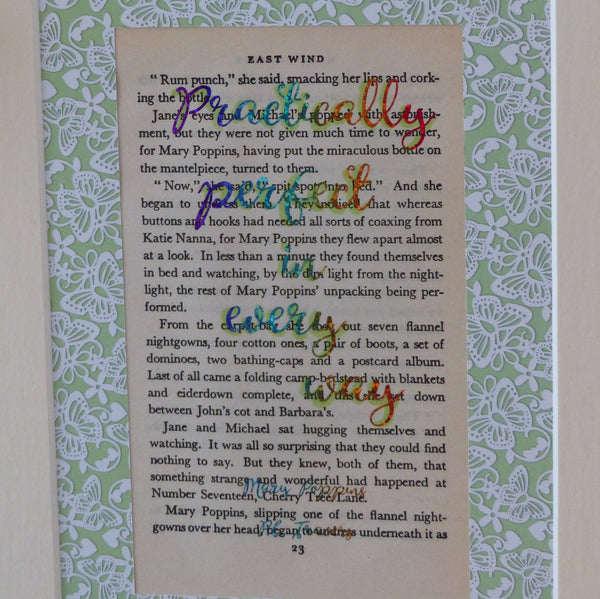 EAST WIND
"Rum punch," she said, smacking her lips and cork-
ing the bottle.
Jane's eyes and Michael's popped with astonish-
ment, but they were not given much time to wonder,
for Mary Poppins, having put the miraculous bottle on
the mantelpiece, turned to them.
"Now," she said, "spit-spot into bed." And she
began to undress them. They noticed that whereas
buttons and hooks had needed all sorts of coaxing from
Katie Nanna, for Mary Poppins they flew apart almost
at a look. In less than a minute they found themselves
in bed and watching, by the dim light from the night-
light, the rest of Mary Poppins' unpacking being per-
formed.
From the carpet-bag she took out seven flannel
nightgowns, four cotton ones, a pair of boots, a set of
dominoes, two bathing-caps and a postcard album.
Last of all came a folding camp-bedstead with blankets
and eiderdown complete, and this she set down
between John's cot and Barbara's.
Jane and Michael sat hugging themselves and
watching. It was all so surprising that they could find
nothing to say. But they knew, both of them, that
something strange and wonderful had happened at
Number Seventeen, Cherry Tree Lane.
Mary Poppins, slipping one of the flannel night-
gowns over her head, began to undress underneath it as
23
Practically
perfect
in
every
way
Mary Poppins
PL Travers